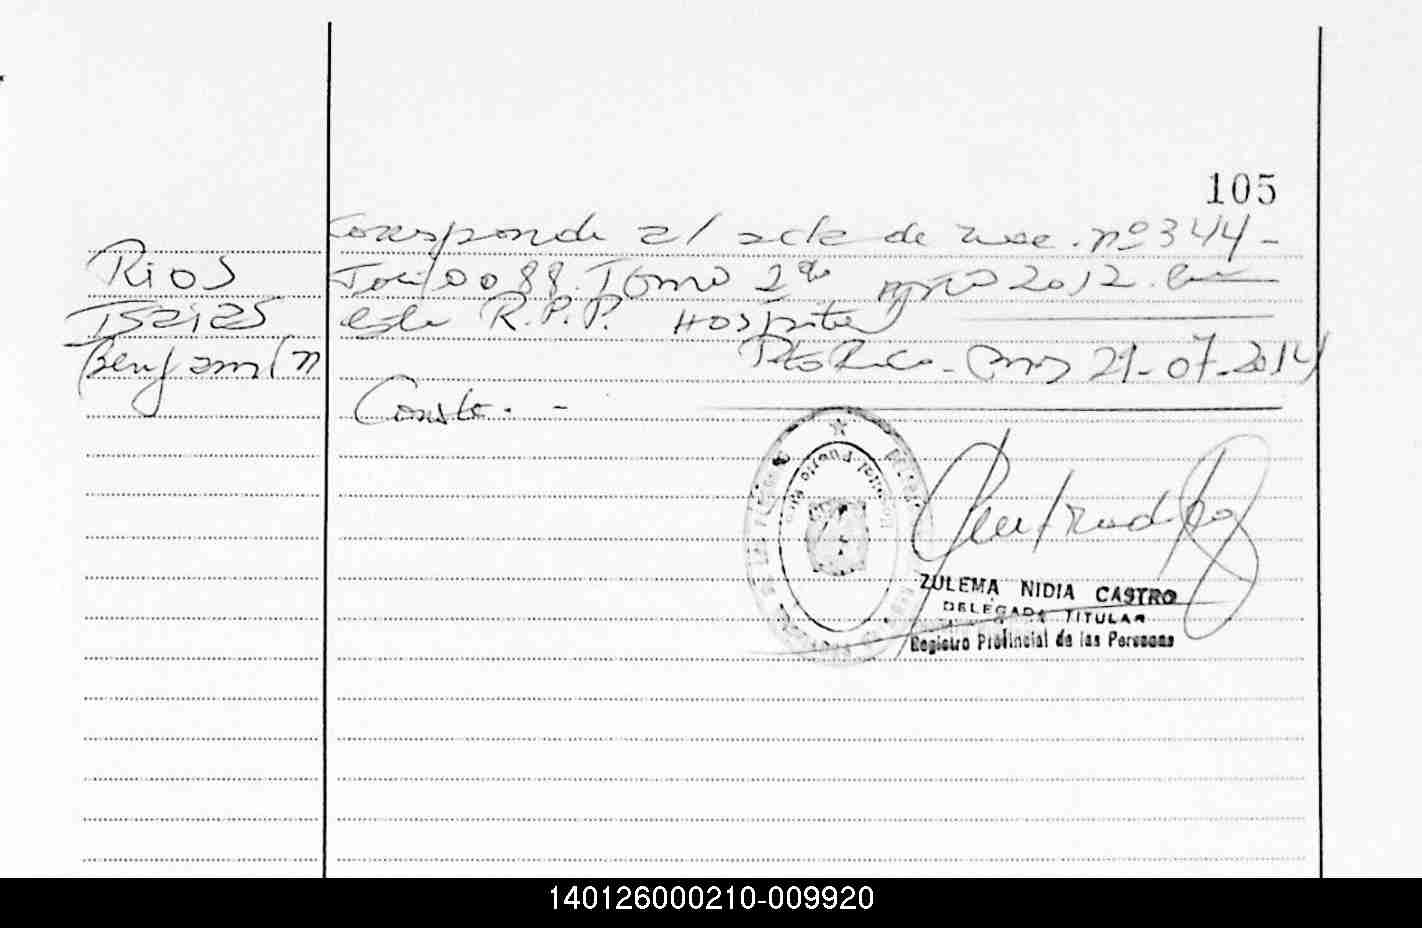 105
Corresponde al acta de nac. nº 344 -
Rios
Folio 088. Tomo 2do año 2012. en
Isaias
este R.P.P. Hospital
Benjamín
Pto Rico - Mnes 21-07-2014
Conste. -
ZULEMA NIDIA CASTRO
DELEGADA TITULAR
Registro Provincial de las Personas
140126000210-009920